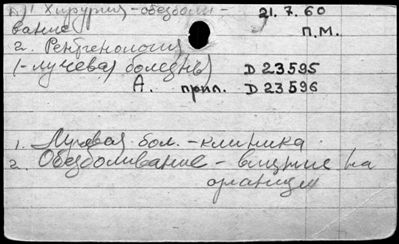 1. Хирургия - обезболи- 21.7.60
вание П.М.
2. Рентгенология
(-лучевая болезнь) D 23595
А. прил. D 23596
1. Лучевая бол. - клиника
2. Обезболивание - влияние на
организм